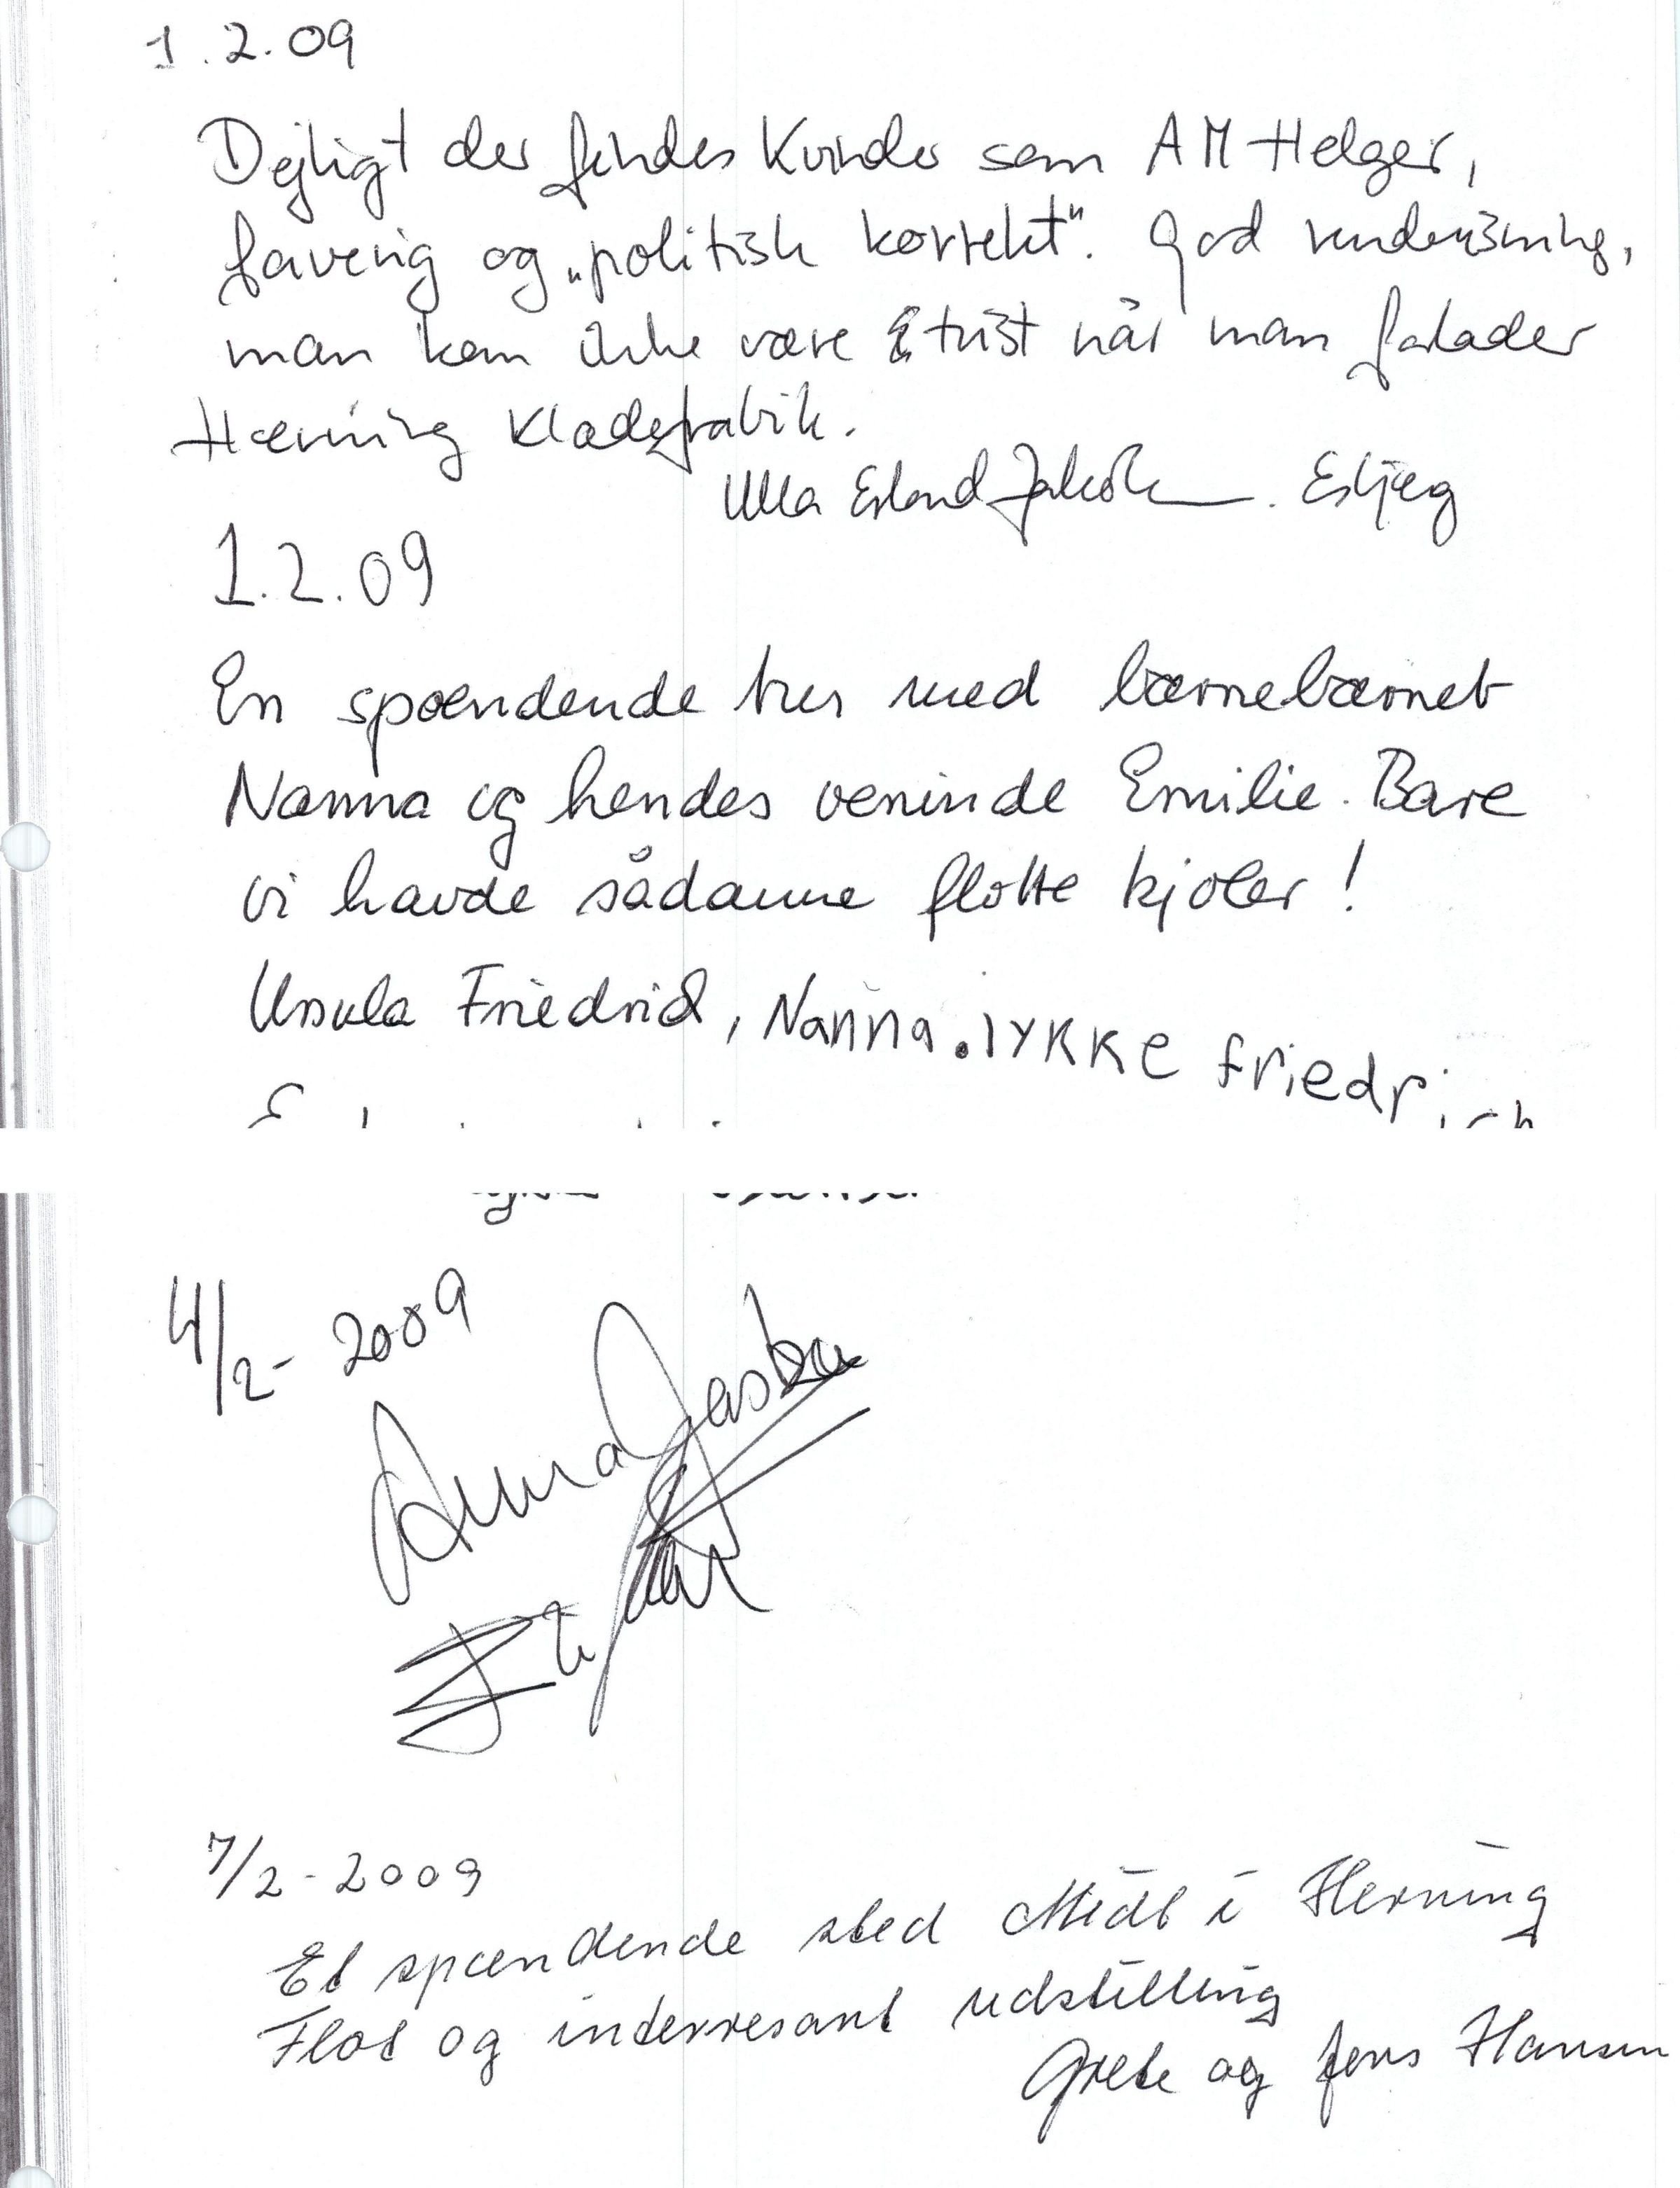 1.2.09
Dejligt der findes Kvinder som AM Helger,
farverig og „politisk korrekt". God rundvisning,
man kan ikke være trist når man forlader
Herning Klædefabrik.
Ulla Esbjerg
1.2.09
En spændende tur med barnebarnet
Nanna og hendes veninde Emilie. Bare
vi havde sådanne flotte kjoler!
Ursula Friedrich, Nanna.lykke friedrich
4/2-2009
Anna
7/2-2009
Et spændende sted Midt i Herning
Flot og interresant udstilling
Grete og Jens Hansen